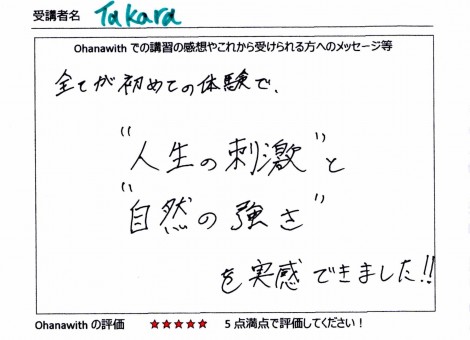 受講者名 Takara
Ohanawith での講習の感想やこれから受けられる方へのメッセージ等
全てが初めての体験で、
"人生の刺激"と
"自然の強さ"
を実感できました!!
Ohanawith の評価 ★★★★★ 5 点満点で評価してください！